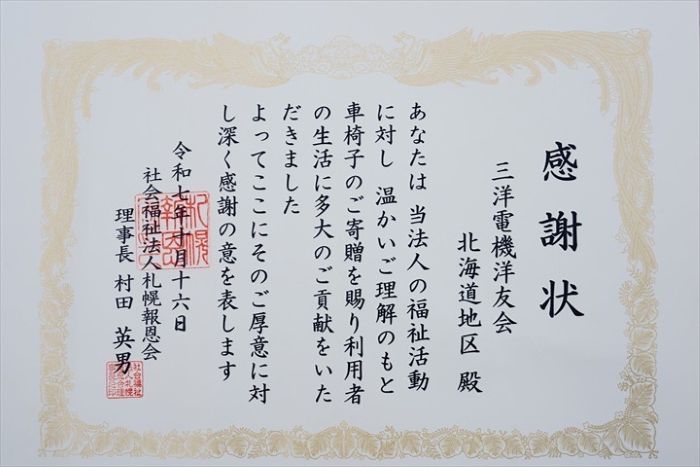 感謝状
三洋電機洋友会
北海道地区 殿
あなたは 当法人の福祉活動
に対し 温かいご理解のもと
車椅子のご寄贈を賜り利用者
の生活に多大のご貢献をいた
だきました
よってここにそのご厚意に対
し深く感謝の意を表します
令和七年十月十六日
社会福祉法人札幌報恩会
理事長 村田 英男